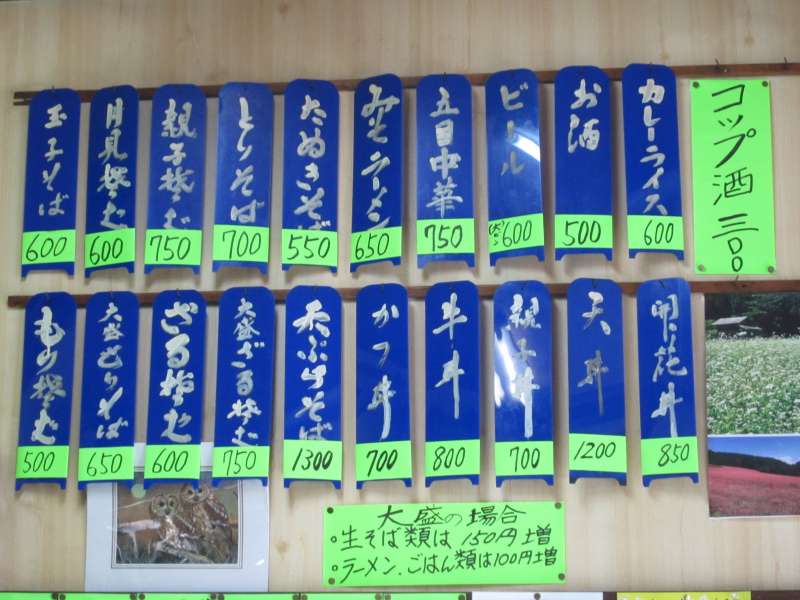 コップ酒 三〇〇
カレーライス
600
お酒
500
ビール
(大ビン) 600
五目中華
750
みそラーメン
650
たぬきそば
550
とりそば
700
親子そば
750
月見そば
600
玉子そば
600
開花丼
850
天丼
1200
親子丼
700
牛丼
800
かつ丼
700
天ぷらそば
1300
大盛ざるそば
750
ざるそば
600
大盛もりそば
650
もりそば
500
大盛の場合
。生そば類は 150円増
。ラーメン、ごはん類は100円増